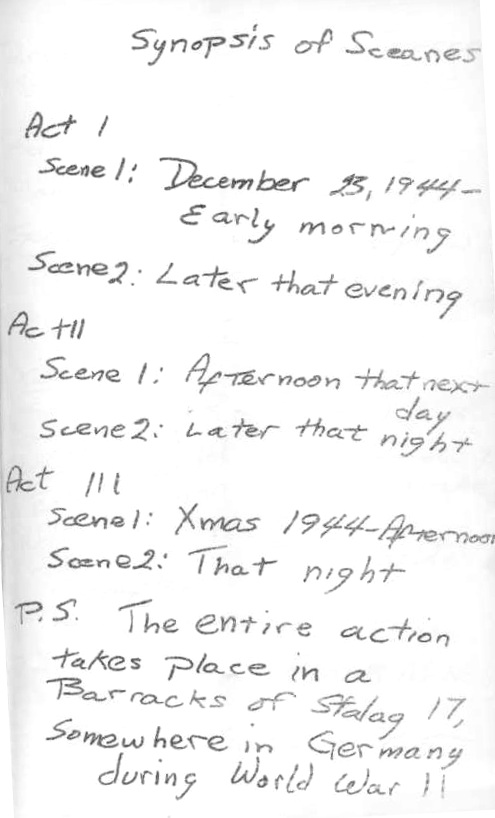 Synopsis of Sceanes
Act I
Scene 1: December 23, 1944–
Early morning
Scene 2: Later that evening
Act II
Scene 1: Afternoon that next
day
Scene 2: Later that night
Act III
Scene 1: Xmas 1944–Afternoon
Scene 2: That night
P.S. The entire action
takes place in a
Barracks of Stalag 17,
Somewhere in Germany
during World War II